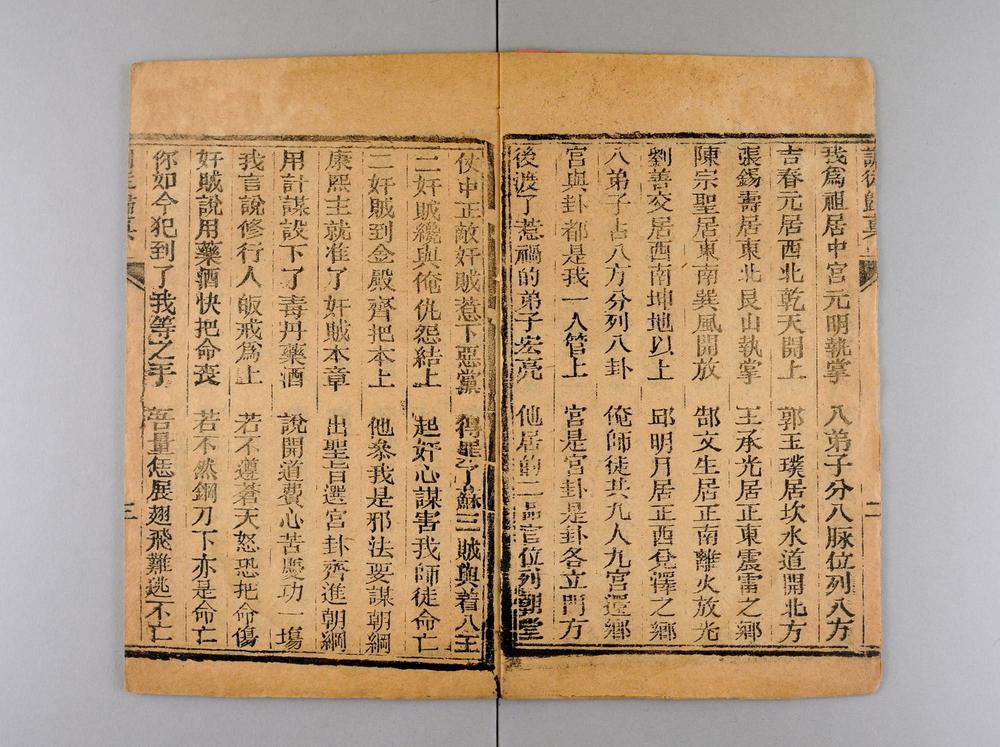 我爲祖居中宮元明執掌 八弟子分八脉位列八方
吉春元居西北乾天開上 郭玉璞居坎水道開北方
張錫壽居東北艮山執掌 王承光居正東震雷之鄉
陳宗聖居東南巽風開放 郜文生居正南離火放光
劉善交居西南坤地以上 邱明月居正西兌澤之鄉
八弟子占八方分列八卦 俺師徒共九人九宮還鄉
宮與卦都是我一人管上 宮是宮卦是卦各立門方
後渡了惹禍的弟子宏亮 他居的二品官位列朝堂
仗中正敵奸賊惹下惡黨 得罪了蘇三賊與着八王
二奸賊纔與俺仇怨結上 起奸心謀害我師徒命亡
二奸賊到金殿齊把本上 他叅我是邪法要謀朝綱
康熙主就准了奸賊本章 出聖旨選宮卦齊進朝綱
用計謀設下了毒丹藥酒 說開道費心苦慶功一塲
我言說修行人皈戒爲上 若不遵蒼天怒恐把命傷
奸賊說用藥酒快把命丧 若不然鋼刀下亦是命亡
你如今犯到了我等之手 吾量您展翅飛難逃不亡
二
三